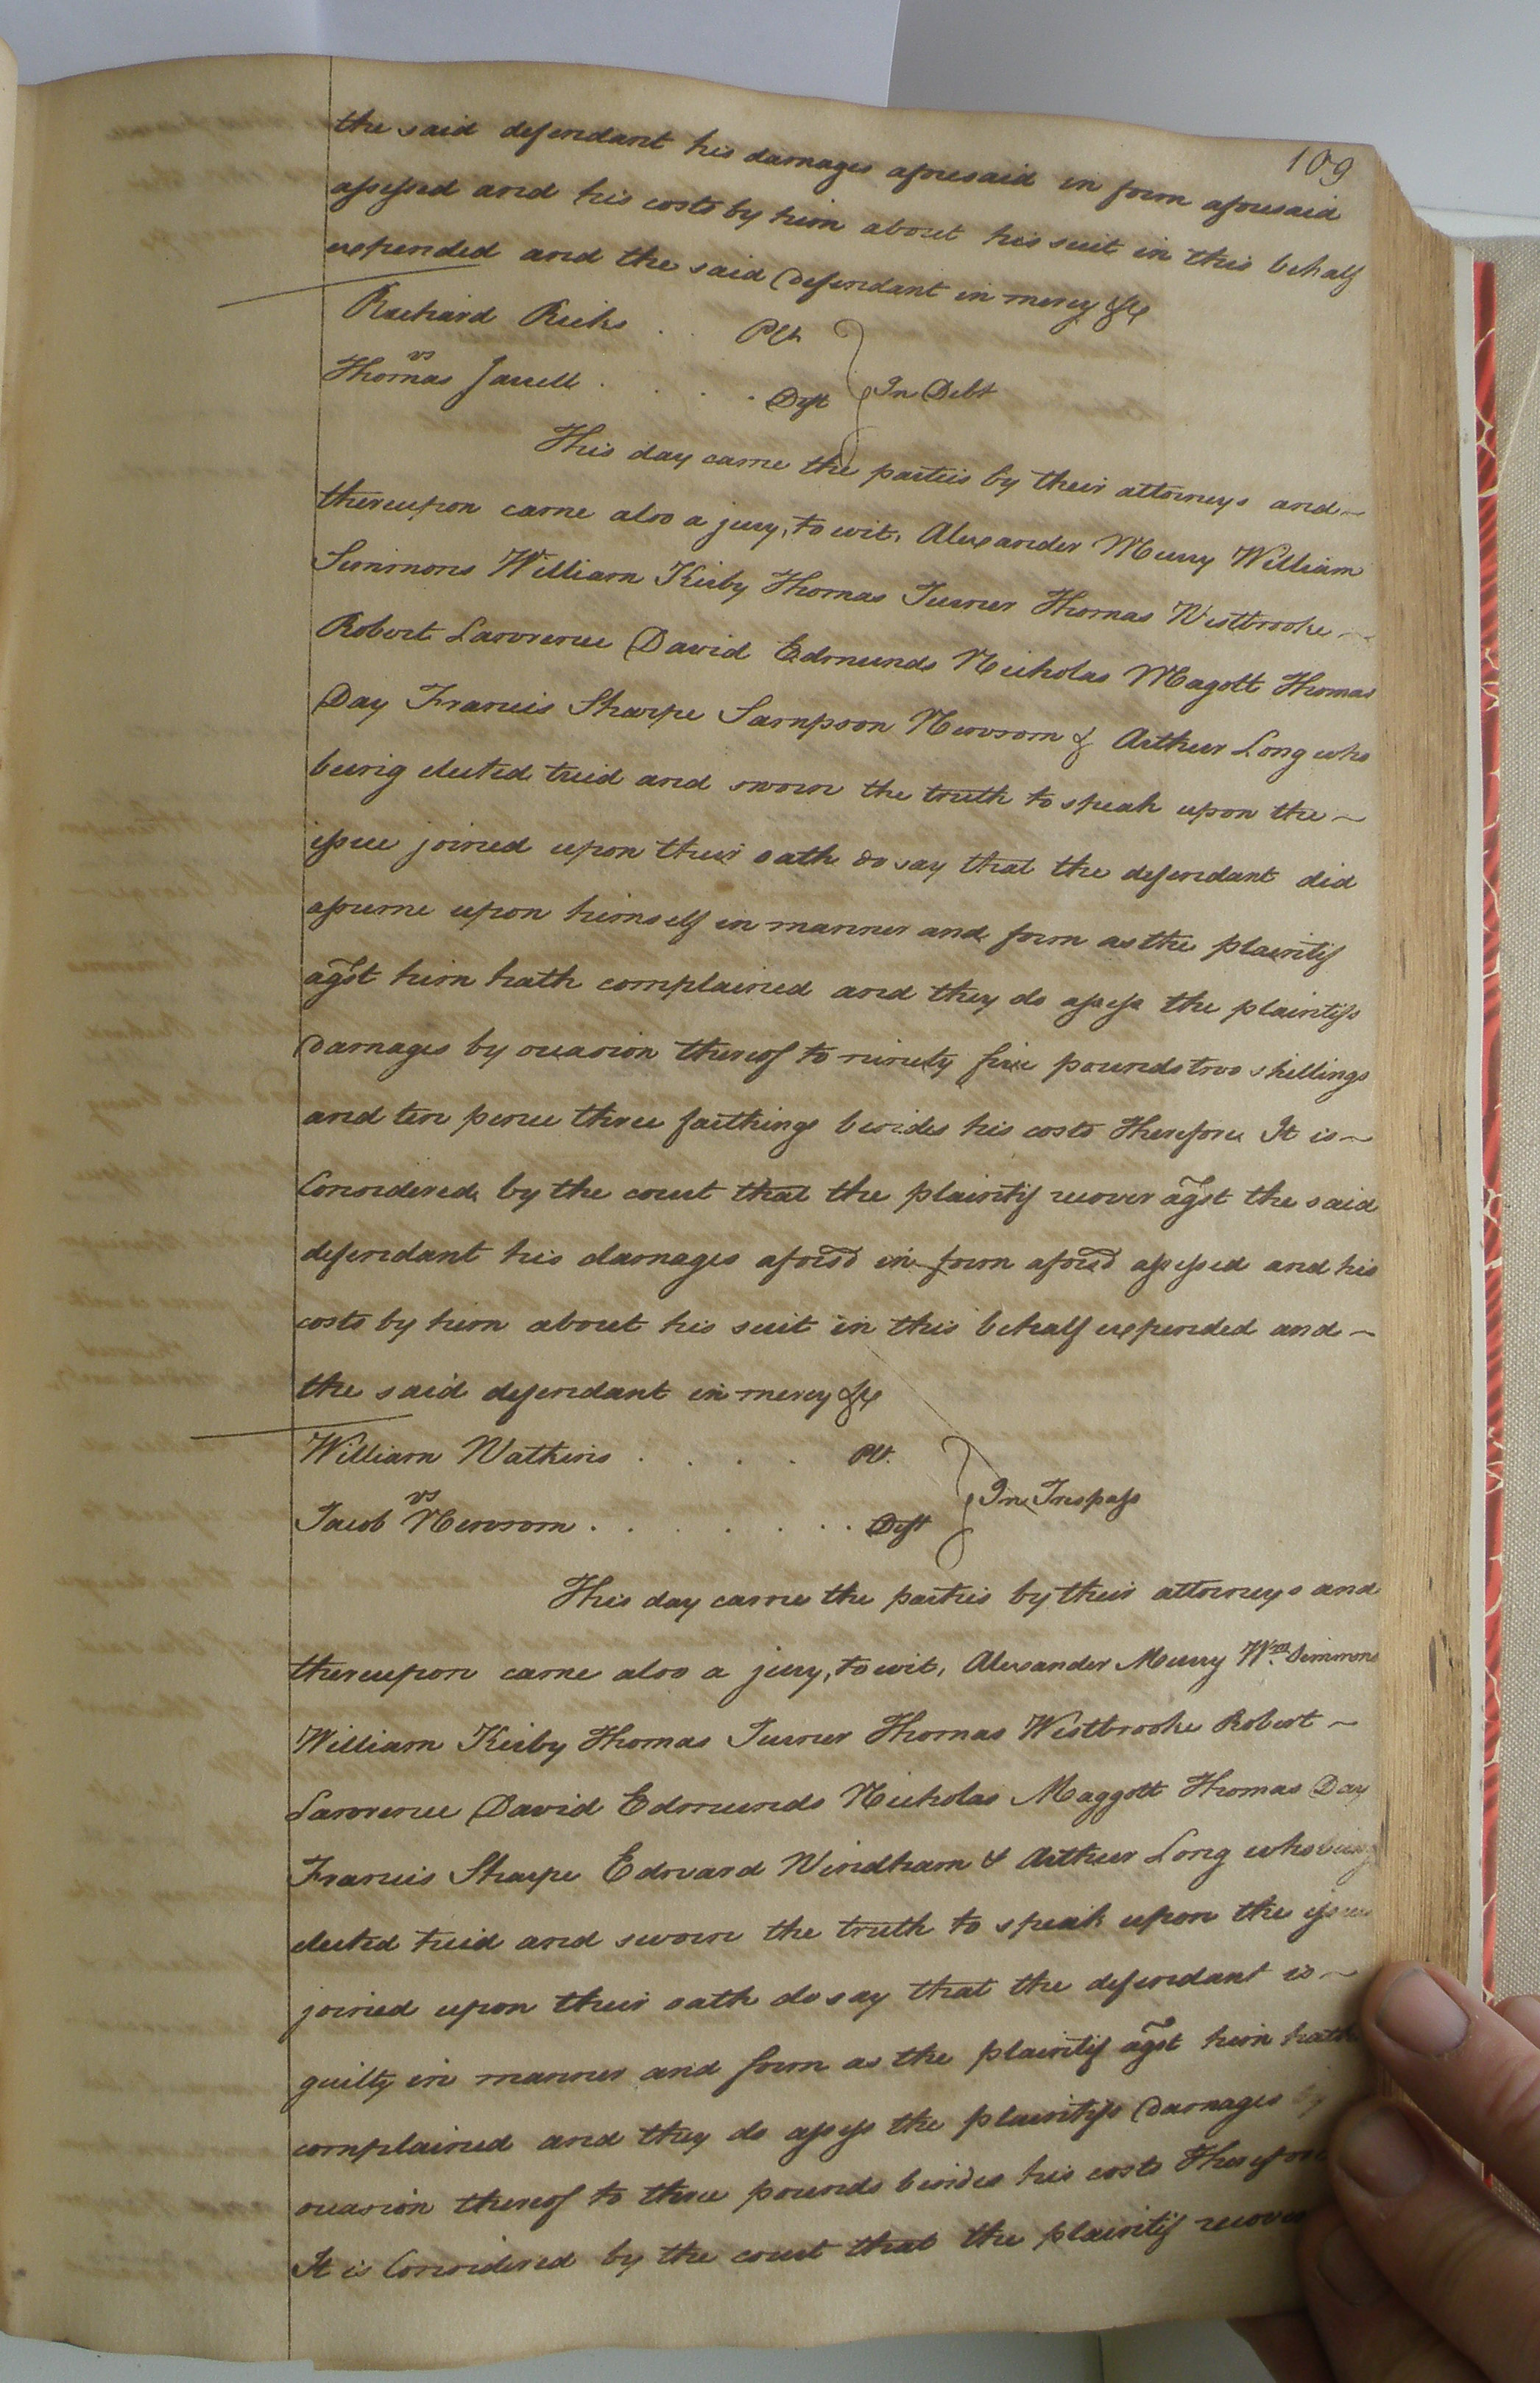 109
the said defendant his damages aforesaid in form aforesaid
assessed and his costs by him about his suit in this behalf
expended and the said Defendant in mercy &c
Richard Ricks . . Plt
vs
Thomas Jarrell . . . . Deft } In Debt
This day came the parties by their attorneys and
thereupon came also a jury, to wit, Alexander Murry William
Simmons William Kirby Thomas Turner Thomas Westbrooke
Robert Lawrence David Edmunds Nicholas Magott Thomas
Day Francis Sharpe Sampson Newsom & Arthur Long who
being elected tried and sworn the truth to speak upon the
issue joined upon their oath do say that the defendant did
assume upon himself in manner and form as the plaintif
agst him hath complained and they do assess the plaintifs
Damages by occasion thereof to ninety five pounds two shillings
and ten pence three farthings besides his costs Therefore It is
Considered by the court that the plaintif recover agst the said
defendant his damages aforsd in form aforsd assessed and his
costs by him about his suit in this behalf expended and
the said defendant in mercy &c
William Watkins . . . . Plt.
vs
Jacob Newsom . . . . . . . . Deft } In Trespass
This day came the parties by their attorneys and
thereupon came also a jury, to wit, Alexander Murry Wm. Simmons
William Kirby Thomas Turner Thomas Westbrooke Robert
Lawrence David Edmunds Nicholas Maggott Thomas Day
Francis Sharpe Edward Windham & Arthur Long who being
elected tried and sworn the truth to speak upon the issue
joined upon their oath do say that the defendant is
guilty in manner and form as the plaintif agst him hath
complained and they do assess the plaintifs Damages by
occasion thereof to three pounds besides his costs Therefore
It is Considered by the court that the plaintif recover